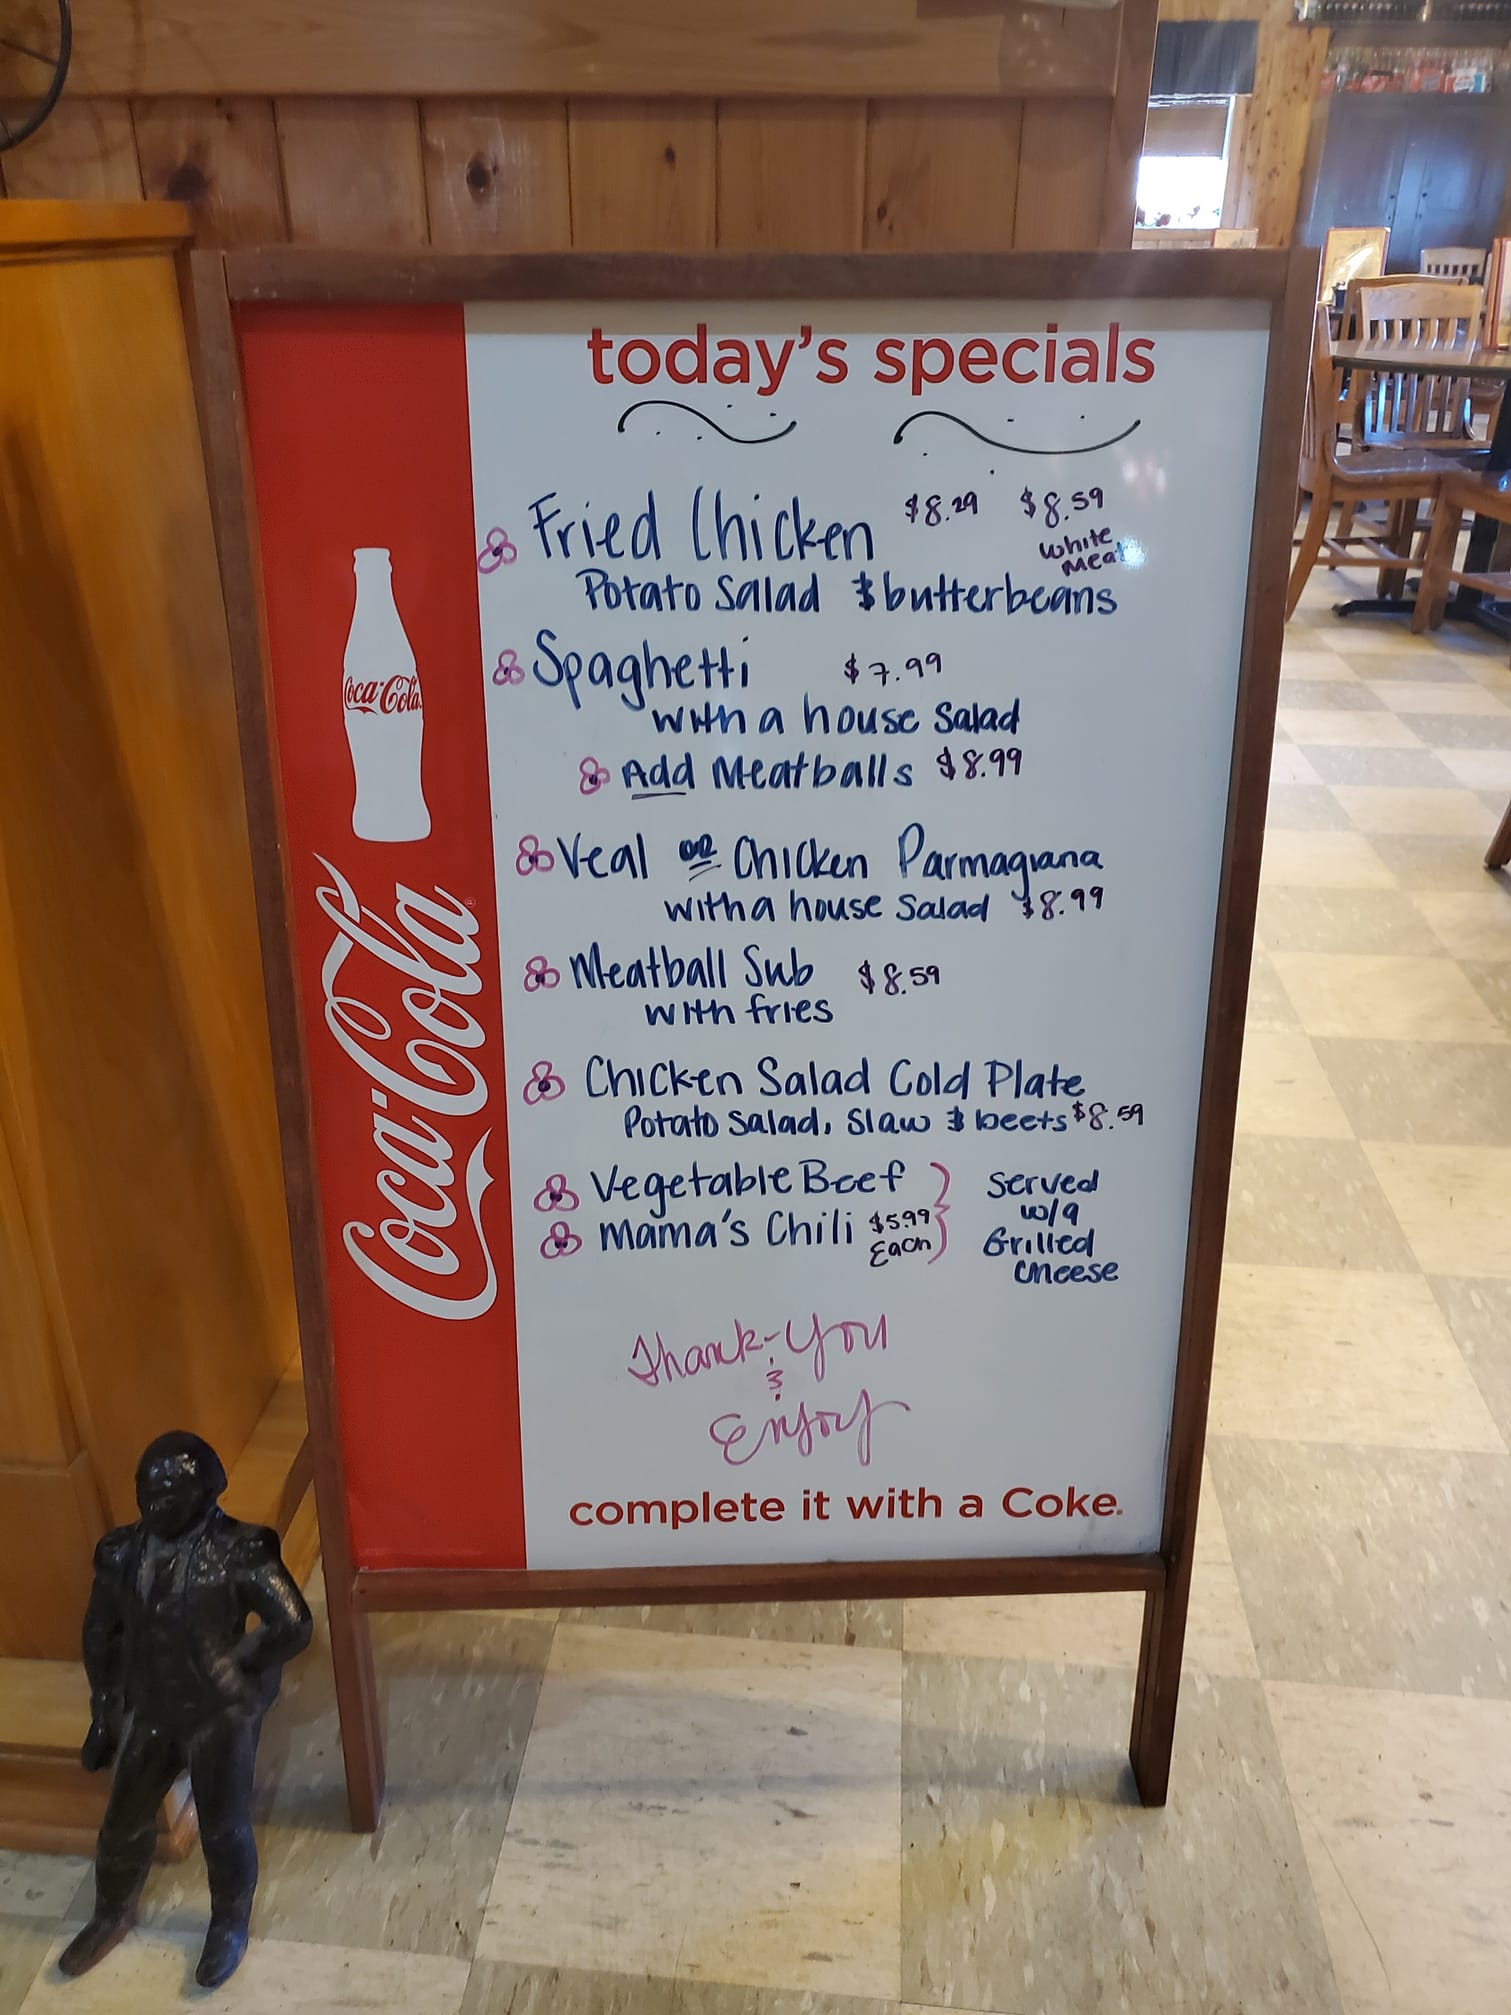 today's specials
Fried Chicken $8.29 $8.59
White
Meat
Potato Salad & butterbeans
Spaghetti $7.99
with a house Salad
Add Meatballs $8.99
Veal or Chicken Parmagiana
with a house Salad $8.99
Meatball Sub $8.59
with fries
Chicken Salad Cold Plate
Potato Salad, Slaw & beets $8.59
Vegetable Beef
Mama's Chili $5.99
Each
Served
w/a
Grilled
Cheese
Thank-You
&
Enjoy
complete it with a Coke.
Coca-Cola
Coca-Cola®